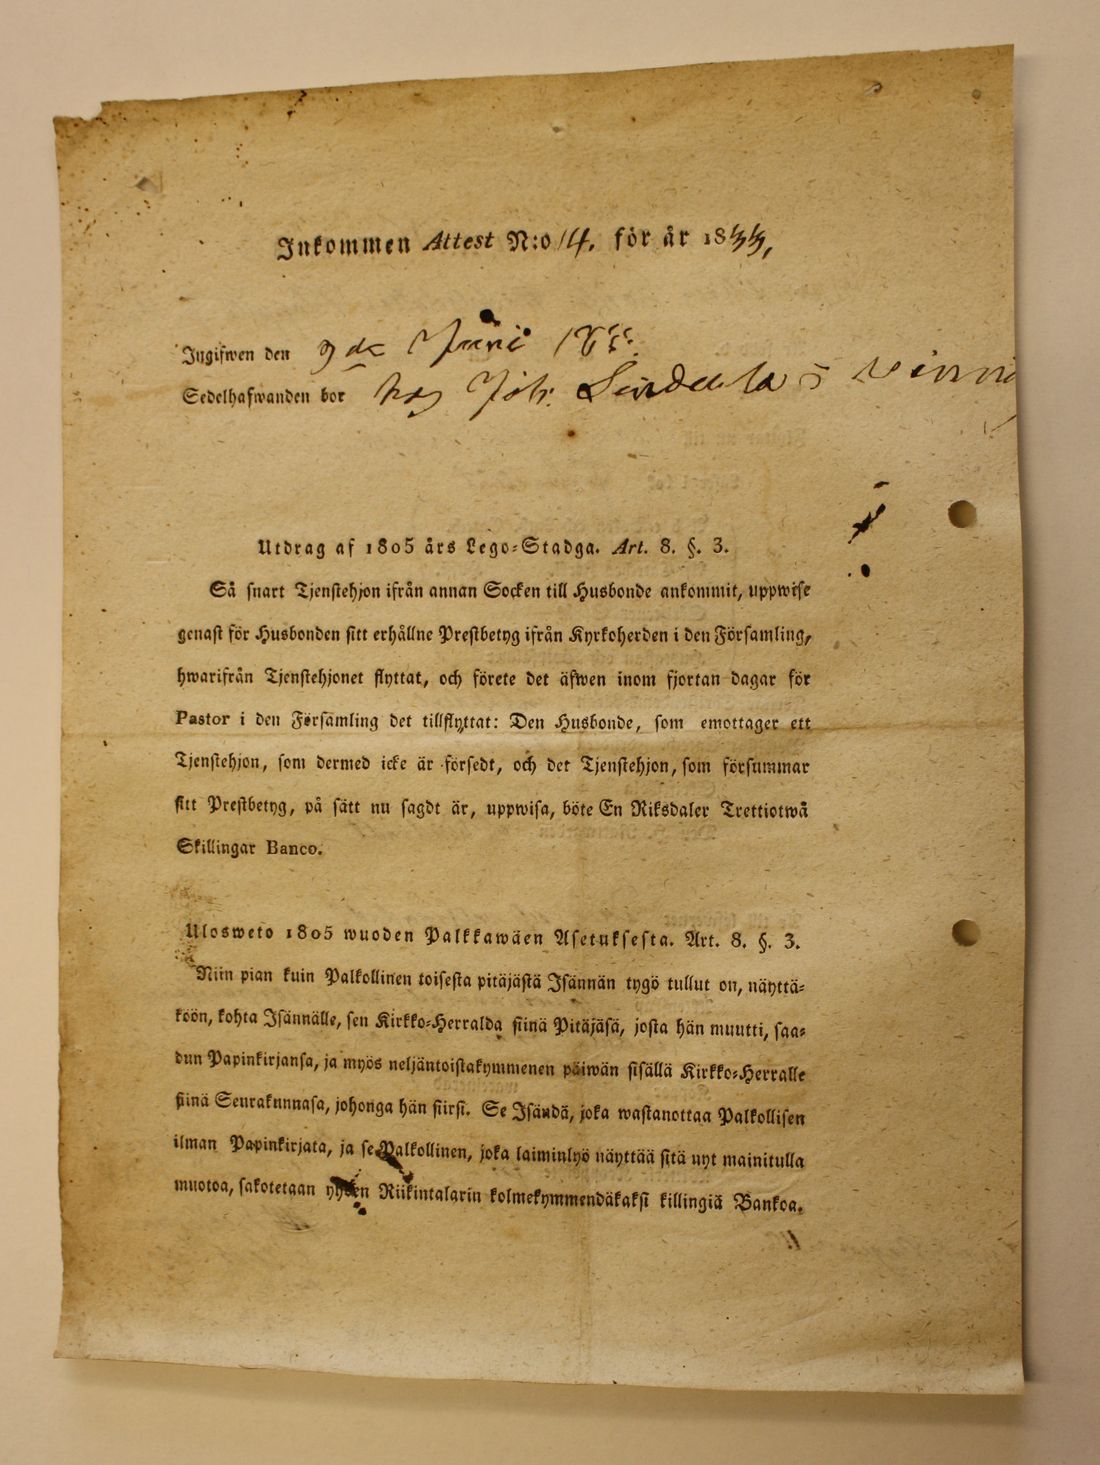 Inkommen Attest N:o 14. för år 1855,
Ingifwen den 9de Juni 1855.
Sedelhafwanden bor hos Joh.
Utdrag af 1805 års Lego-Stadga. Art. 8. §. 3.
Så snart Tjenstehjon ifrån annan Socken till Husbonde ankommit, uppwise
genast för Husbonden sitt erhållne Prestbetyg ifrån Kyrkoherden i den Församling,
hwarifrån Tjenstehjonet flyttat, och förete det äfwen inom fjortan dagar för
Pastor i den Församling det tillflyttat: Den Husbonde, som emottager ett
Tjenstehjon, som dermed icke är försedt, och det Tjenstehjon, som försummar
sitt Prestbetyg, på sätt nu sagdt är, uppwisa, böte En Riksdaler Trettiotwå
Skillingar Banco.
Ulosweto 1805 wuoden Palkkawäen Asetuksesta. Art. 8. §. 3.
Niin pian kuin Palkollinen toisesta pitäjästä Isännän tygö tullut on, näyttä-
köön, kohta Isännälle, sen Kirkko-Herralda siinä Pitäjäsä, josta hän muutti, saa-
dun Papinkirjansa, ja myös neljäntoistakymmenen päiwän sisällä Kirkko-Herralle
siinä Seurakunnasa, johonga hän siirsi. Se Isändä, joka wastanottaa Palkollisen
ilman Papinkirjata, ja se Palkollinen, joka laiminlyö näyttää sitä nyt mainitulla
muotoa, sakotetaan yhden Riikintalarin kolmekymmendäkaksi killingiä Bankoa.